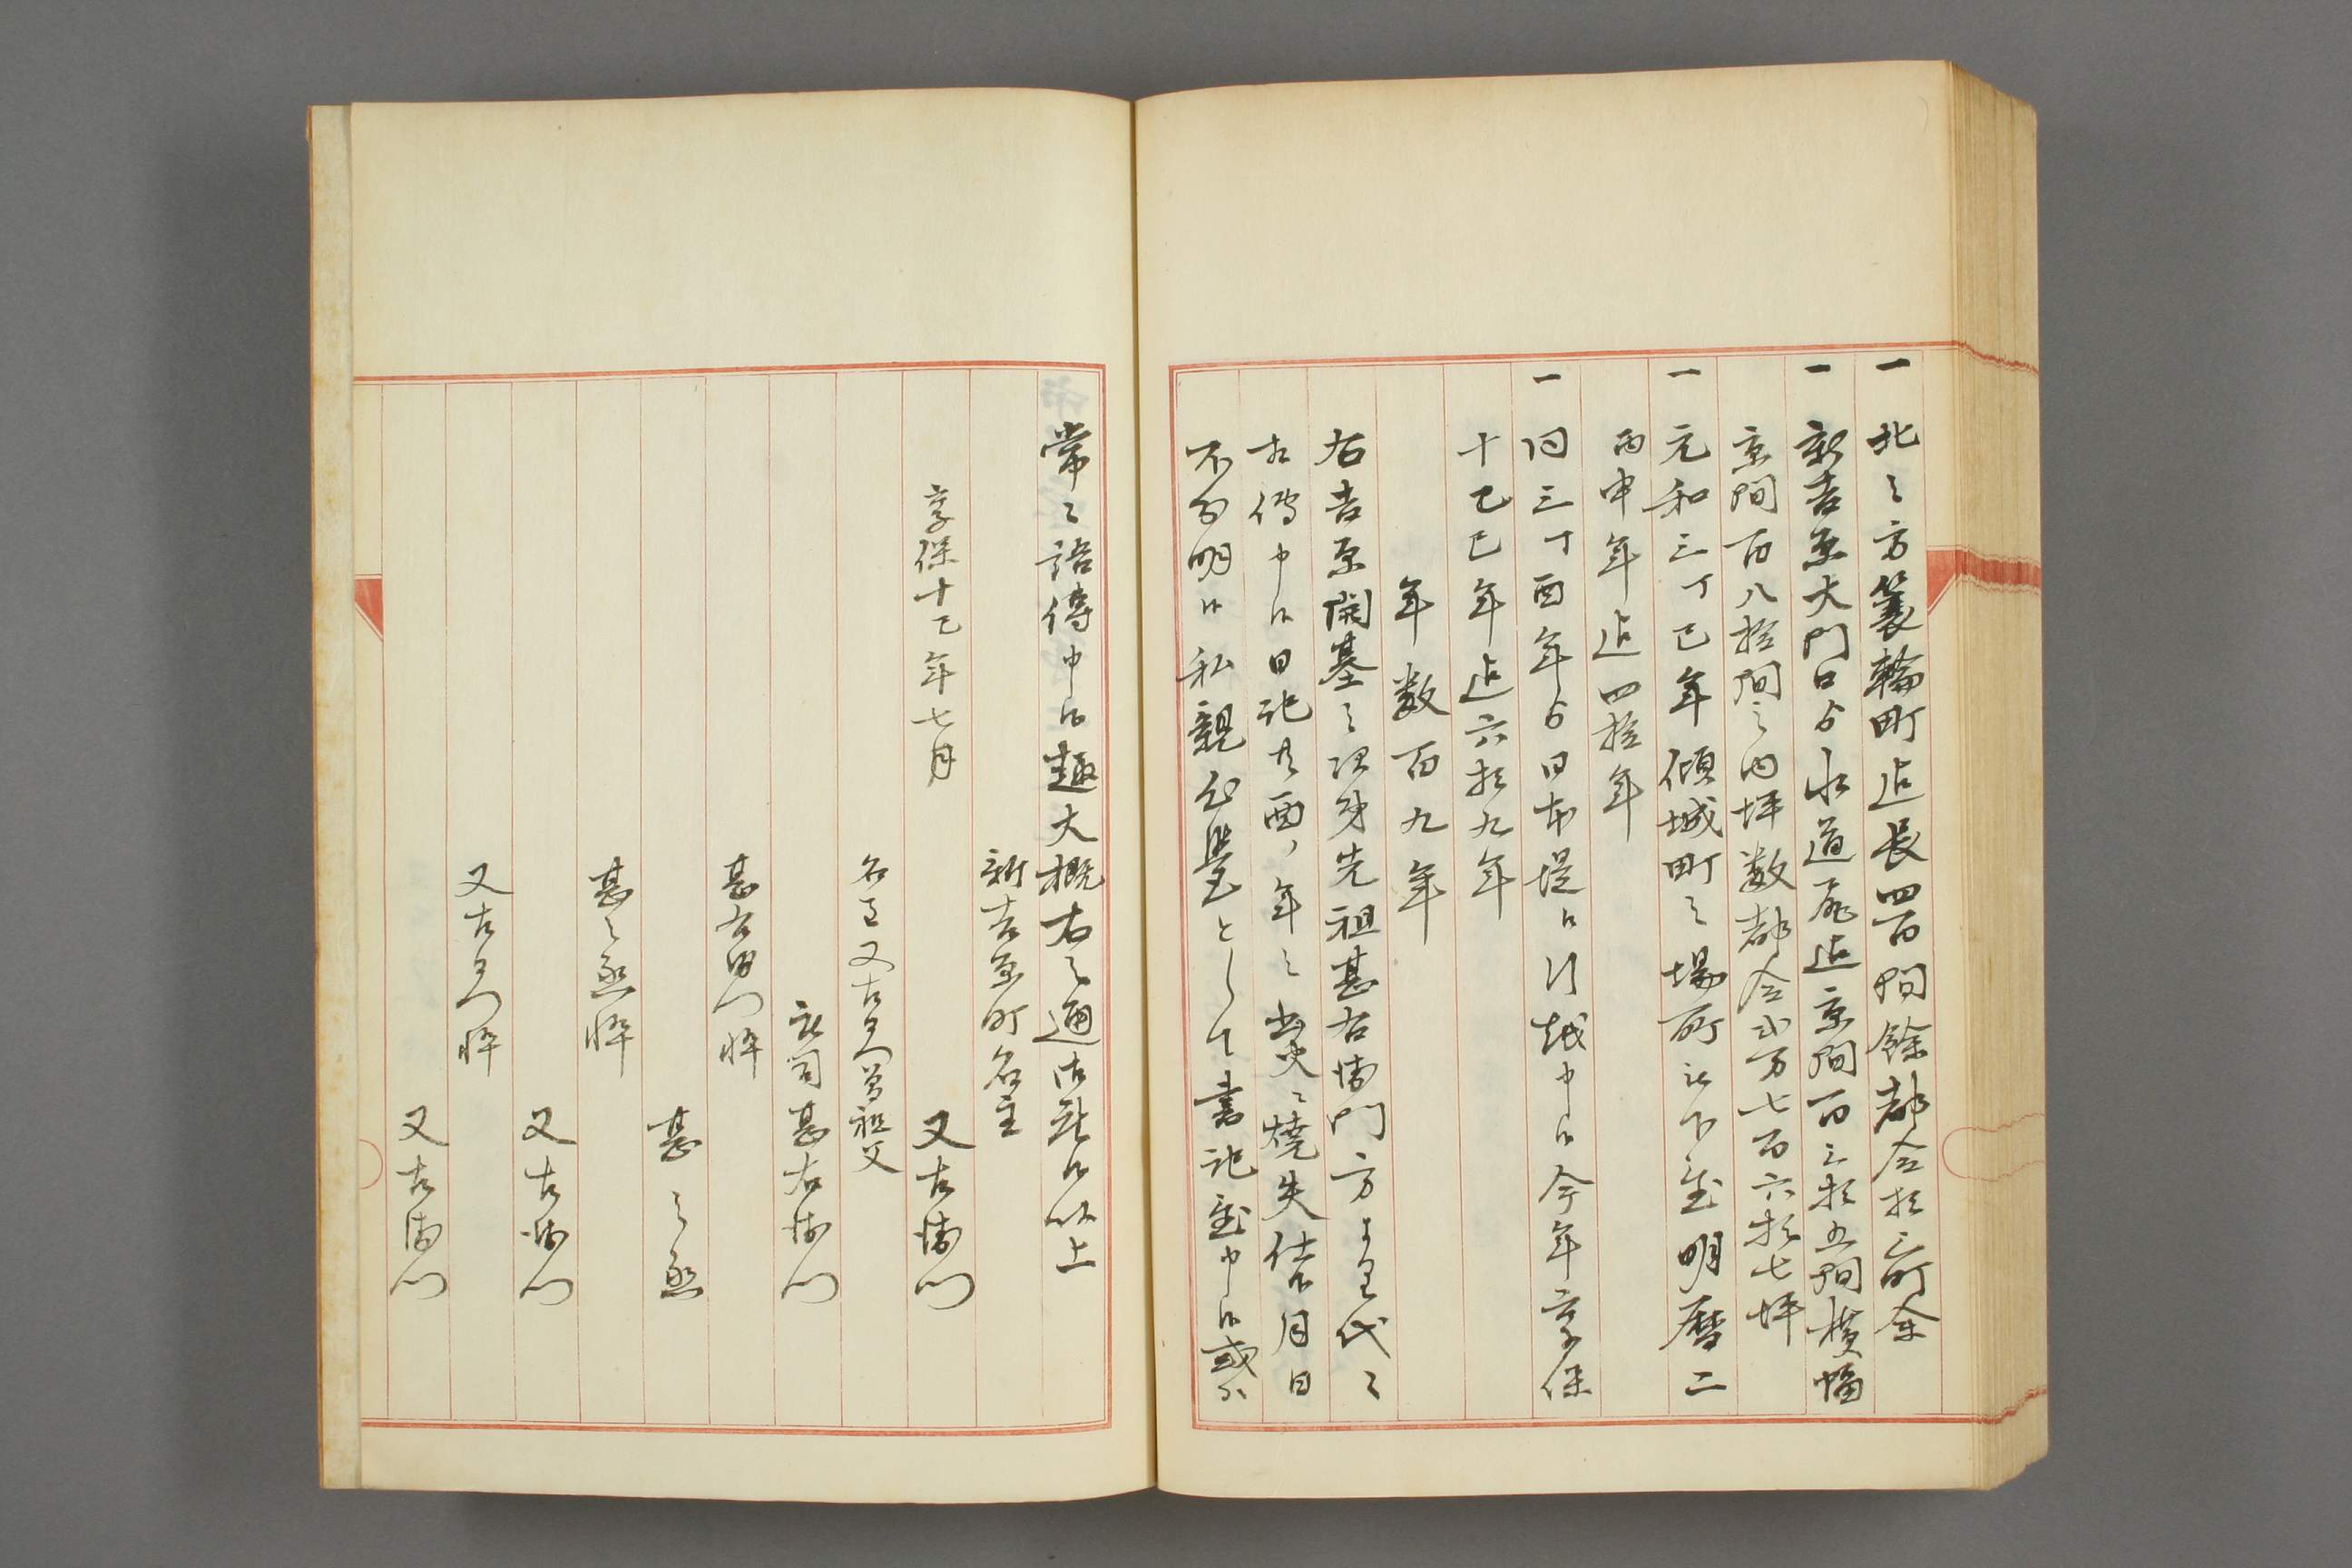 一 北之方簔輪町迄長四百間餘都合拾三町余
一 新吉原大門口ゟ水道尻迄京間百三拾五間横幅
京間百八拾間之内坪数都合弐万七百六拾七坪
一 元和三丁巳年傾城町之場所被下置明暦二
丙申年迄四拾年
一 同三丁酉年ゟ日本堤に引越申候今年享保
十乙巳年迄六拾九年
年数百九年
右吉原開基之次第先祖甚右衛門方より代々
相傳申候日記共酉ノ年之出火に燒失仕候月日
不分明に候私親公覺として書記置申候或ハ
常々語傳申候趣大概右之通御座候以上
新吉原町名主
享保十乙年七月
又左衛門
名主又左衛門曽祖父
庄司甚右衛門
甚右衛門忰
甚之丞
甚之丞忰
又左衛門
又左衛門忰
又左衛門